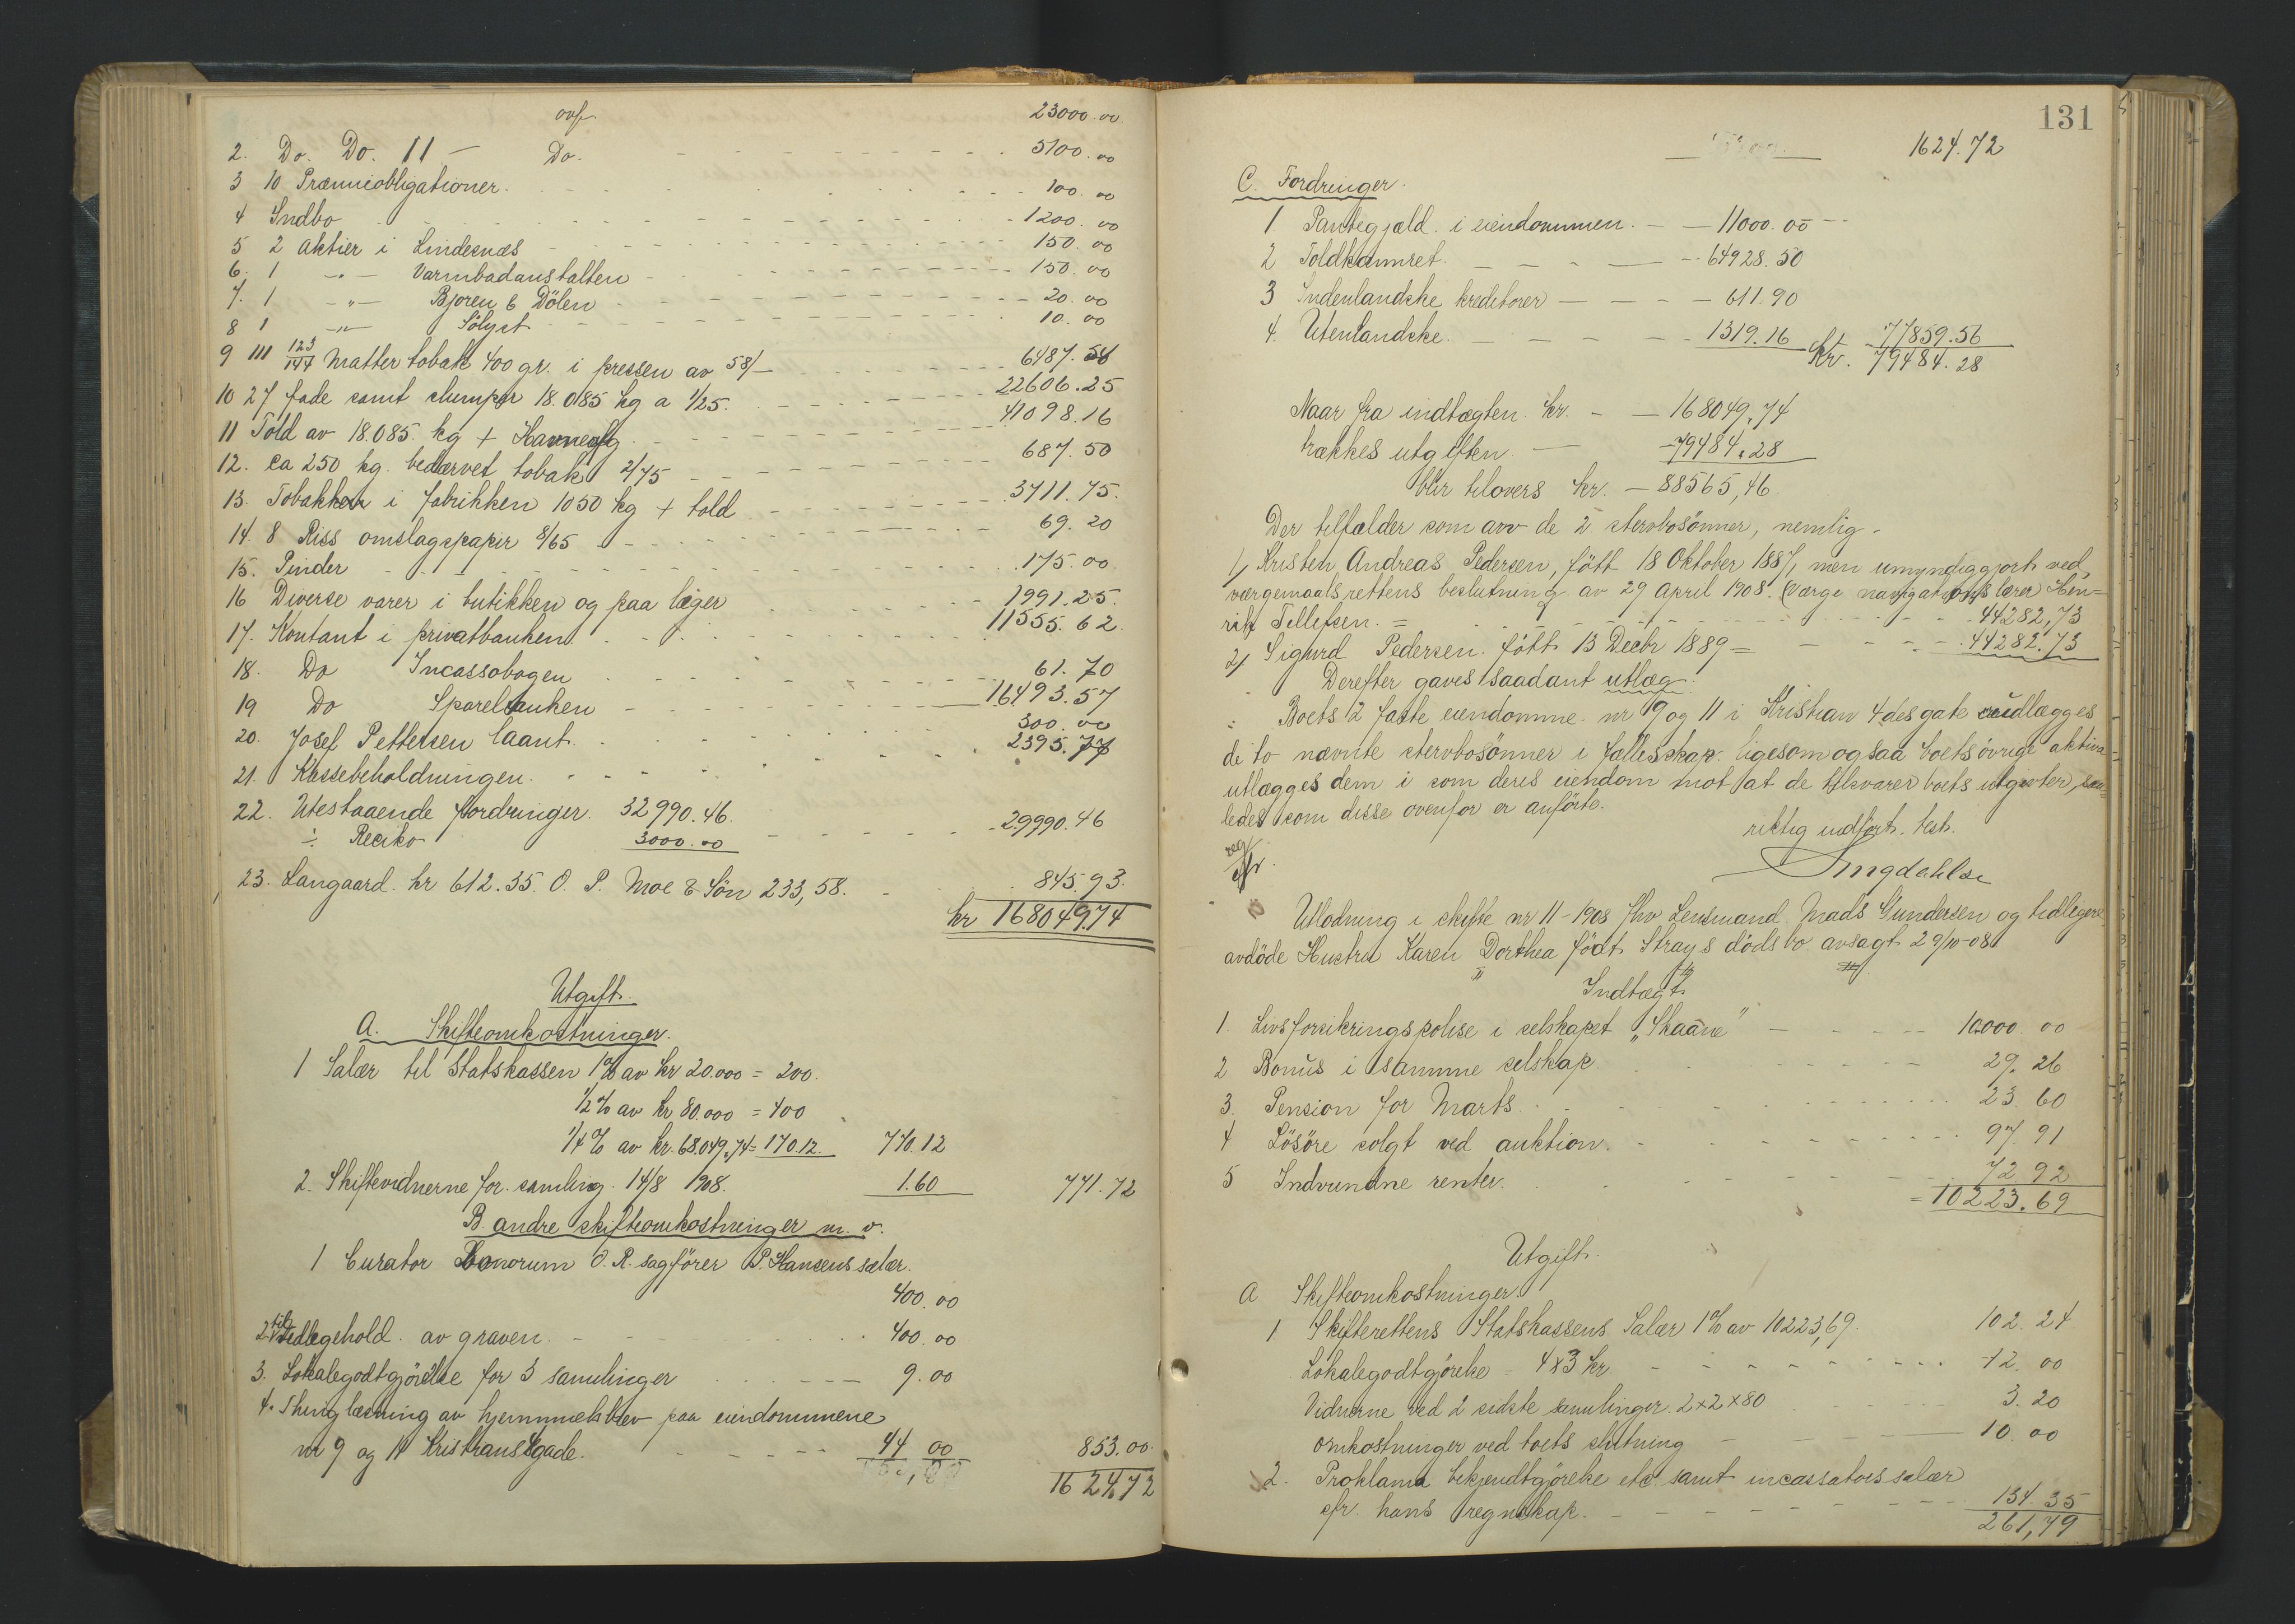 ovf. 23000.00
2. Do. Do. 11 — Do. 5100.00
3 10 Præmieobligationer. 100.00
4 Indbo 1200.00
5 2 aktier i Lindesnæs 150.00
6. 1 -"- Varmbadanstalten 150.00
7. 1 -"- Bjoren & Dölen 20.00
8 1 -"- Sölyst 10.00
9 111 123/144 Matter tobak 400 gr. i pressen av 58/- 6487.58
10 27 fade samt slumper 18.085 kg a 1/25. 22606.25
11 Told av 18.085 kg + Havneafg. 41098.16
12. ca 250 kg. bedærvet tobak 2/75 687.50
13. Tobakken i fabrikken 1050 kg + told 3711.75.
14. 8 Riss omslagspapir 8/65 69.20
15. Pinder 175.00
16 Diverse varer i butikken og paa lager 1991.25.
17. Kontant i privatbanken 11555.62
18. Do Incassobogen 61.70
19 Do Sparebanken 16493.57
20. Josef Pettersen laant. 300.00
21. Kassebeholdningen. 2395.77
22. Utestaaende fordringer. 32990.46.
÷ Reciko 3000.00 29990.46
23. Langaard. kr 612.35. O. P. Moe & Sön 233,58. 845.93.
kr 168049.74
Utgift.
A. Skifteomkostninger.
1 Salær til Statskassen 1% av kr 20.000 = 200.
1/2% av kr 80.000 = 400
1/4% av kr. 68.049,74 = 170.12. 770.12
2. Skiftevidnerne for samling 14/8 1908. 1.60 771.72
B andre skifteomkostninger m. v.
1 Curator bonorum O. R. sagförer P. Hansens salær.
400.00
2 til vedlegehold av graven 400.00
3. Lokalegodtgjörelse for 3 samlinger 9.00
4. Thinglæsning av hjemmelsbrev paa eiendommene
nr 9 og 11 Kristians 4 gade. 44 00 853.00
1624,72
131
1624.72
C. Fordringer.
1 Pantegjæld i eiendommen. 11000.00
2 Toldkamret. 64928.50
3 Indenlandske kreditorer 611.90
4. Utenlandske. 1319.16 77859.56
Kr. 79484.28
Naar fra indtægten kr. 168049,74
trækkes utgiften 79484.28
blir tilovers kr. 88565,46
Der tilfalder som arv de 2 stervbosönner, nemlig.
1, Kristen Andreas Pedersen, född 18 Oktober 1887, men umyndiggjort ved
værgemaalsrettens beslutning av 29 April 1908. (værge navigationslærer Hen=
rik Tellefsen. = 44282,73
2, Sigurd Pedersen. född 13 Decbr 1889 = 44282.73
Derefter gaves saadant utlæg:
Boets 2 faste eiendomme nr 9 og 11 i Kristian 4des gate utlægges
de to nævnte stervbosönner i fællesskap. ligesom ogsaa boets övrige aktiva
utlægges dem i som deres eiendom mot at de tilsvarer boets utgivter, saa=
ledes som disse ovenfor er anförte.
riktig indfört. test.
Lingdahlse
Utlodning i skifte nr 11-1908 fhv Lensmand Mads Gundersen og tidligere
avdöde Hustru Karen Dorthea född Strays dödsbo avsagt 29/10-08
Indtægt
1 Livsforsikringspolise i selskapet "Skaane" 10000 00
2 Bonus i samme selskap. 29.26
3. Pension for Marts. 23.60
4 Lösöre solgt ved auktion. 97.91
5 Indvundne renter. 72 92
= 10223.69
Utgift.
A Skifteomkostninger
1 Skifterettens Statskassens Salær 1% av 10223,69. 102.24
Lokalegodtgjörelse = 4x3 kr 12.00
Vidnerne ved 2 sidste samlinger. 2x2x80 3.20
omkostninger ved boets slutning 10.00
2. Proklama bekjendtgjörelse etc samt incassators salær
cfr. hans regnskap. 134.35
261,79